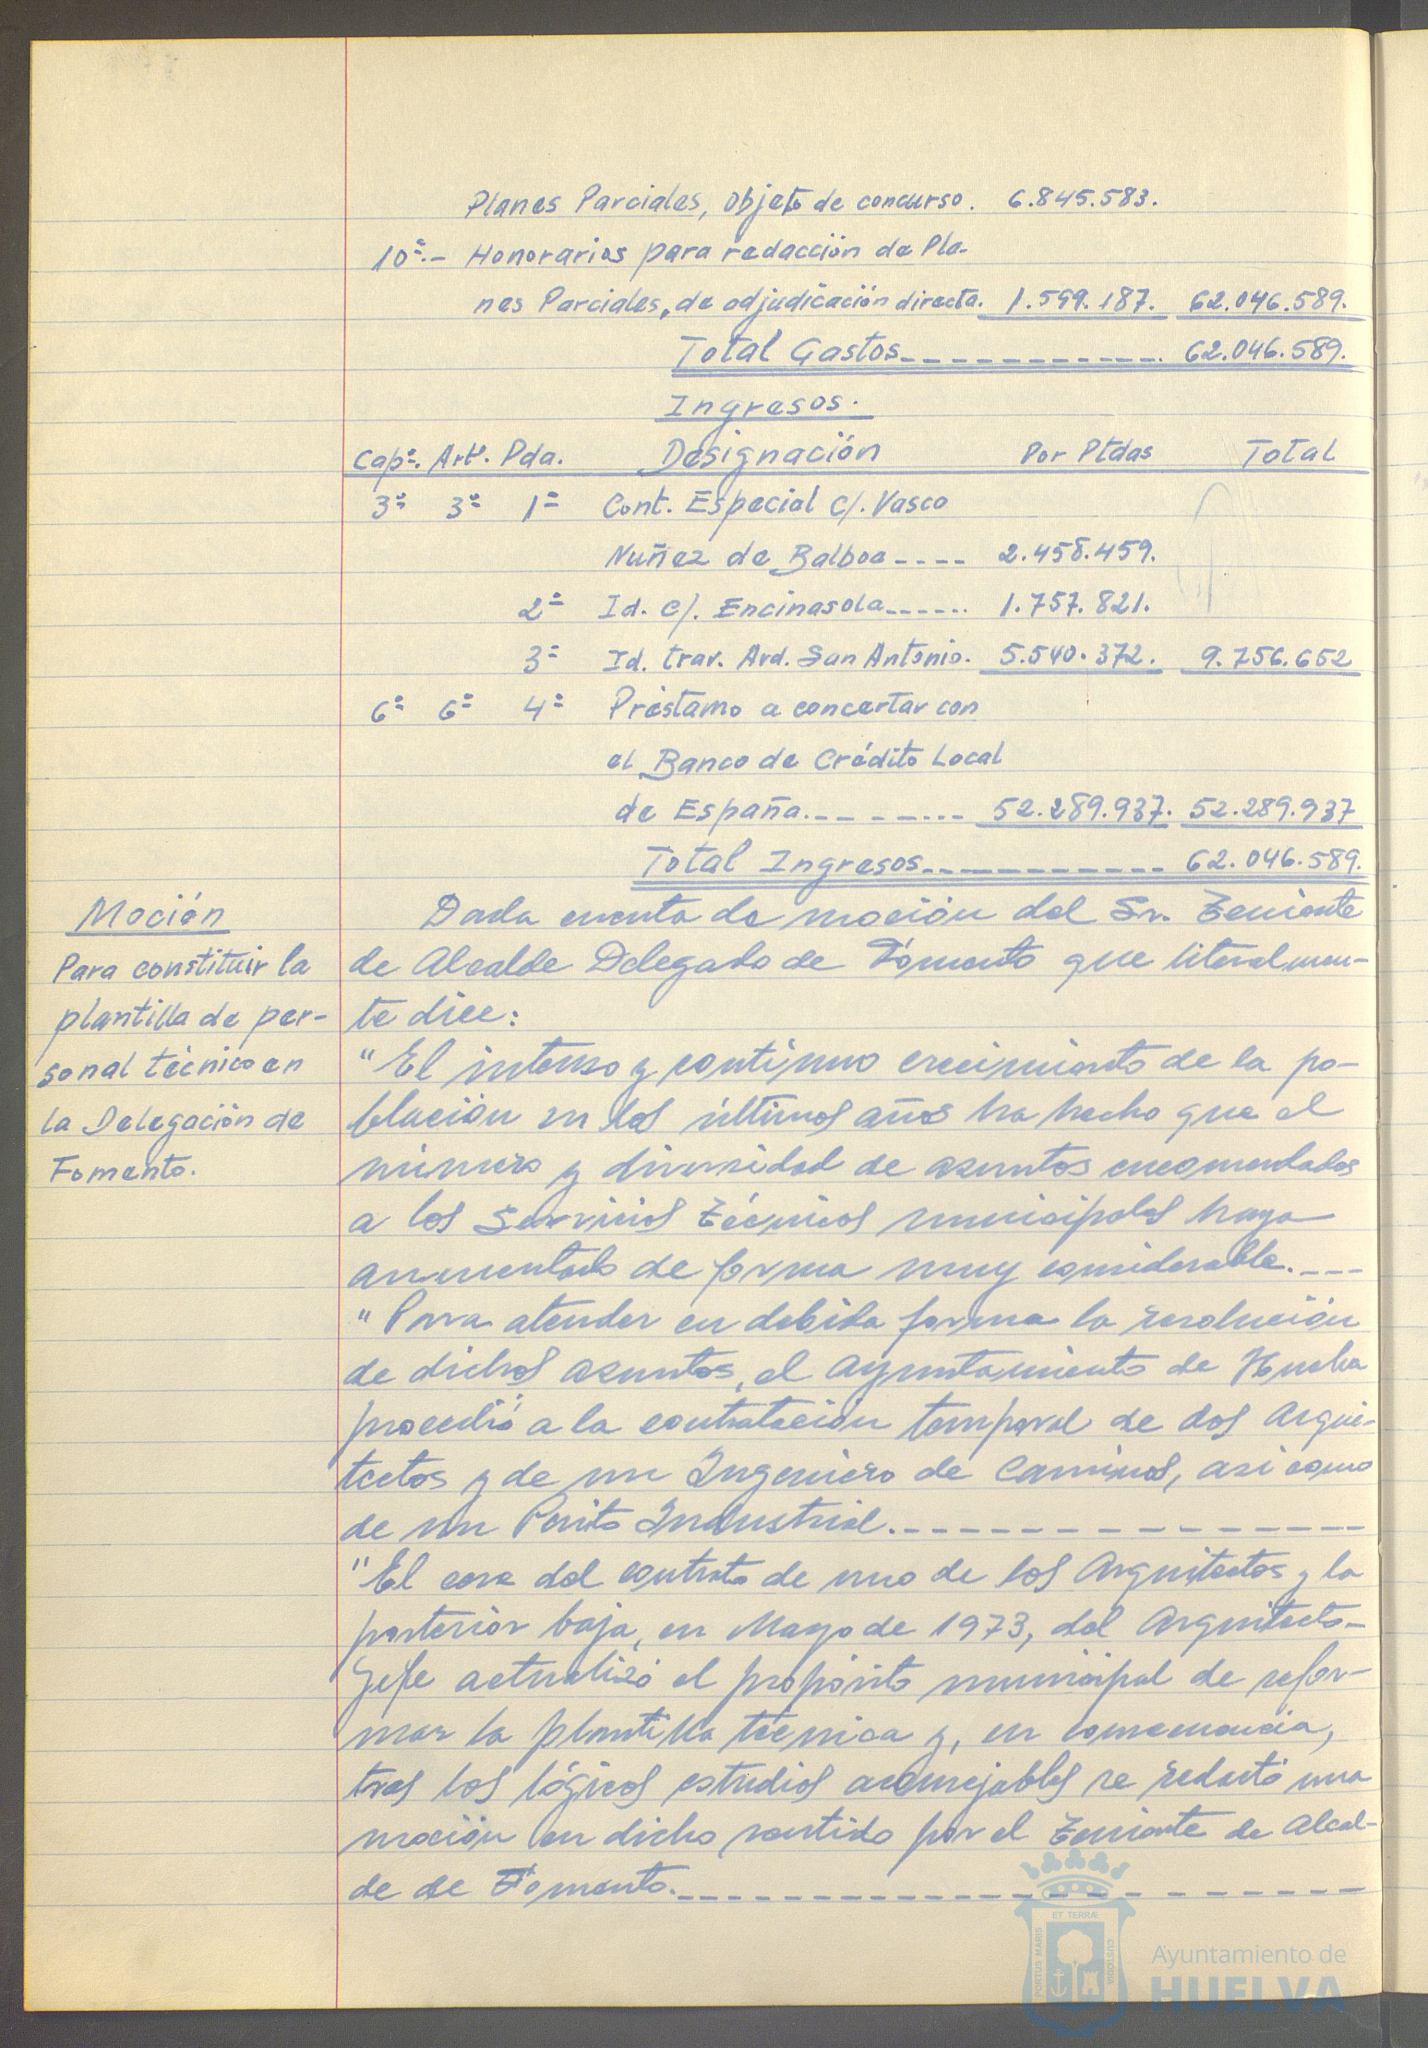 Planes Parciales, objeto de concurso. 6.845.583.
10ª.- Honorarios para redacción de Pla-
nes Parciales, de adjudicación directa. 1.599.187. 62.046.589.
Total Gastos------------. 62.046.589.
Ingresos.
Capº. Artº. Pda. Designación Por Ptdas Total
3º 3º 1ª Cont. Especial c/. Vasco
Nuñez de Balboa---- 2.458.459.
2ª Id. c/. Encinasola------ 1.757.821.
3ª Id. trav. Avd. San Antonio. 5.540.372. 9.756.652
6º 6º 4ª Préstamo a concertar con
el Banco de Crédito Local
de España.-------- 52.289.937. 52.289.937
Total Ingresos------------ 62.046.589.
Moción
Para constituir la
plantilla de per-
sonal técnico en
la Delegación de
Fomento.
Dada cuenta de moción del Sr. Teniente
de Alcalde Delegado de Fomento que literalmen-
te dice:
"El intenso y continuo crecimiento de la po-
blación en los últimos años ha hecho que el
número y diversidad de asuntos encomendados
a los Servicios Técnicos municipales haya
aumentado de forma muy considerable.---
"Para atender en debida forma la resolución
de dichos asuntos, el Ayuntamiento de Huelva
procedió a la contratación temporal de dos Arqui-
tectos y de un Ingeniero de Caminos, asi como
de un Perito Industrial.---------------
"El cese del contrato de uno de los Arquitectos y la
posterior baja, en Mayo de 1973, del Arquitecto-
Jefe actualizó el propósito municipal de refor-
mar la plantilla técnica y, en consecuencia,
tras los lógicos estudios aconsejables se redactó una
moción en dicho sentido por el Teniente de Alcal-
de de Fomento.---------------
ET TERRÆ
PORTUS MARIS
CUSTODIA
Ayuntamiento de
HUELVA